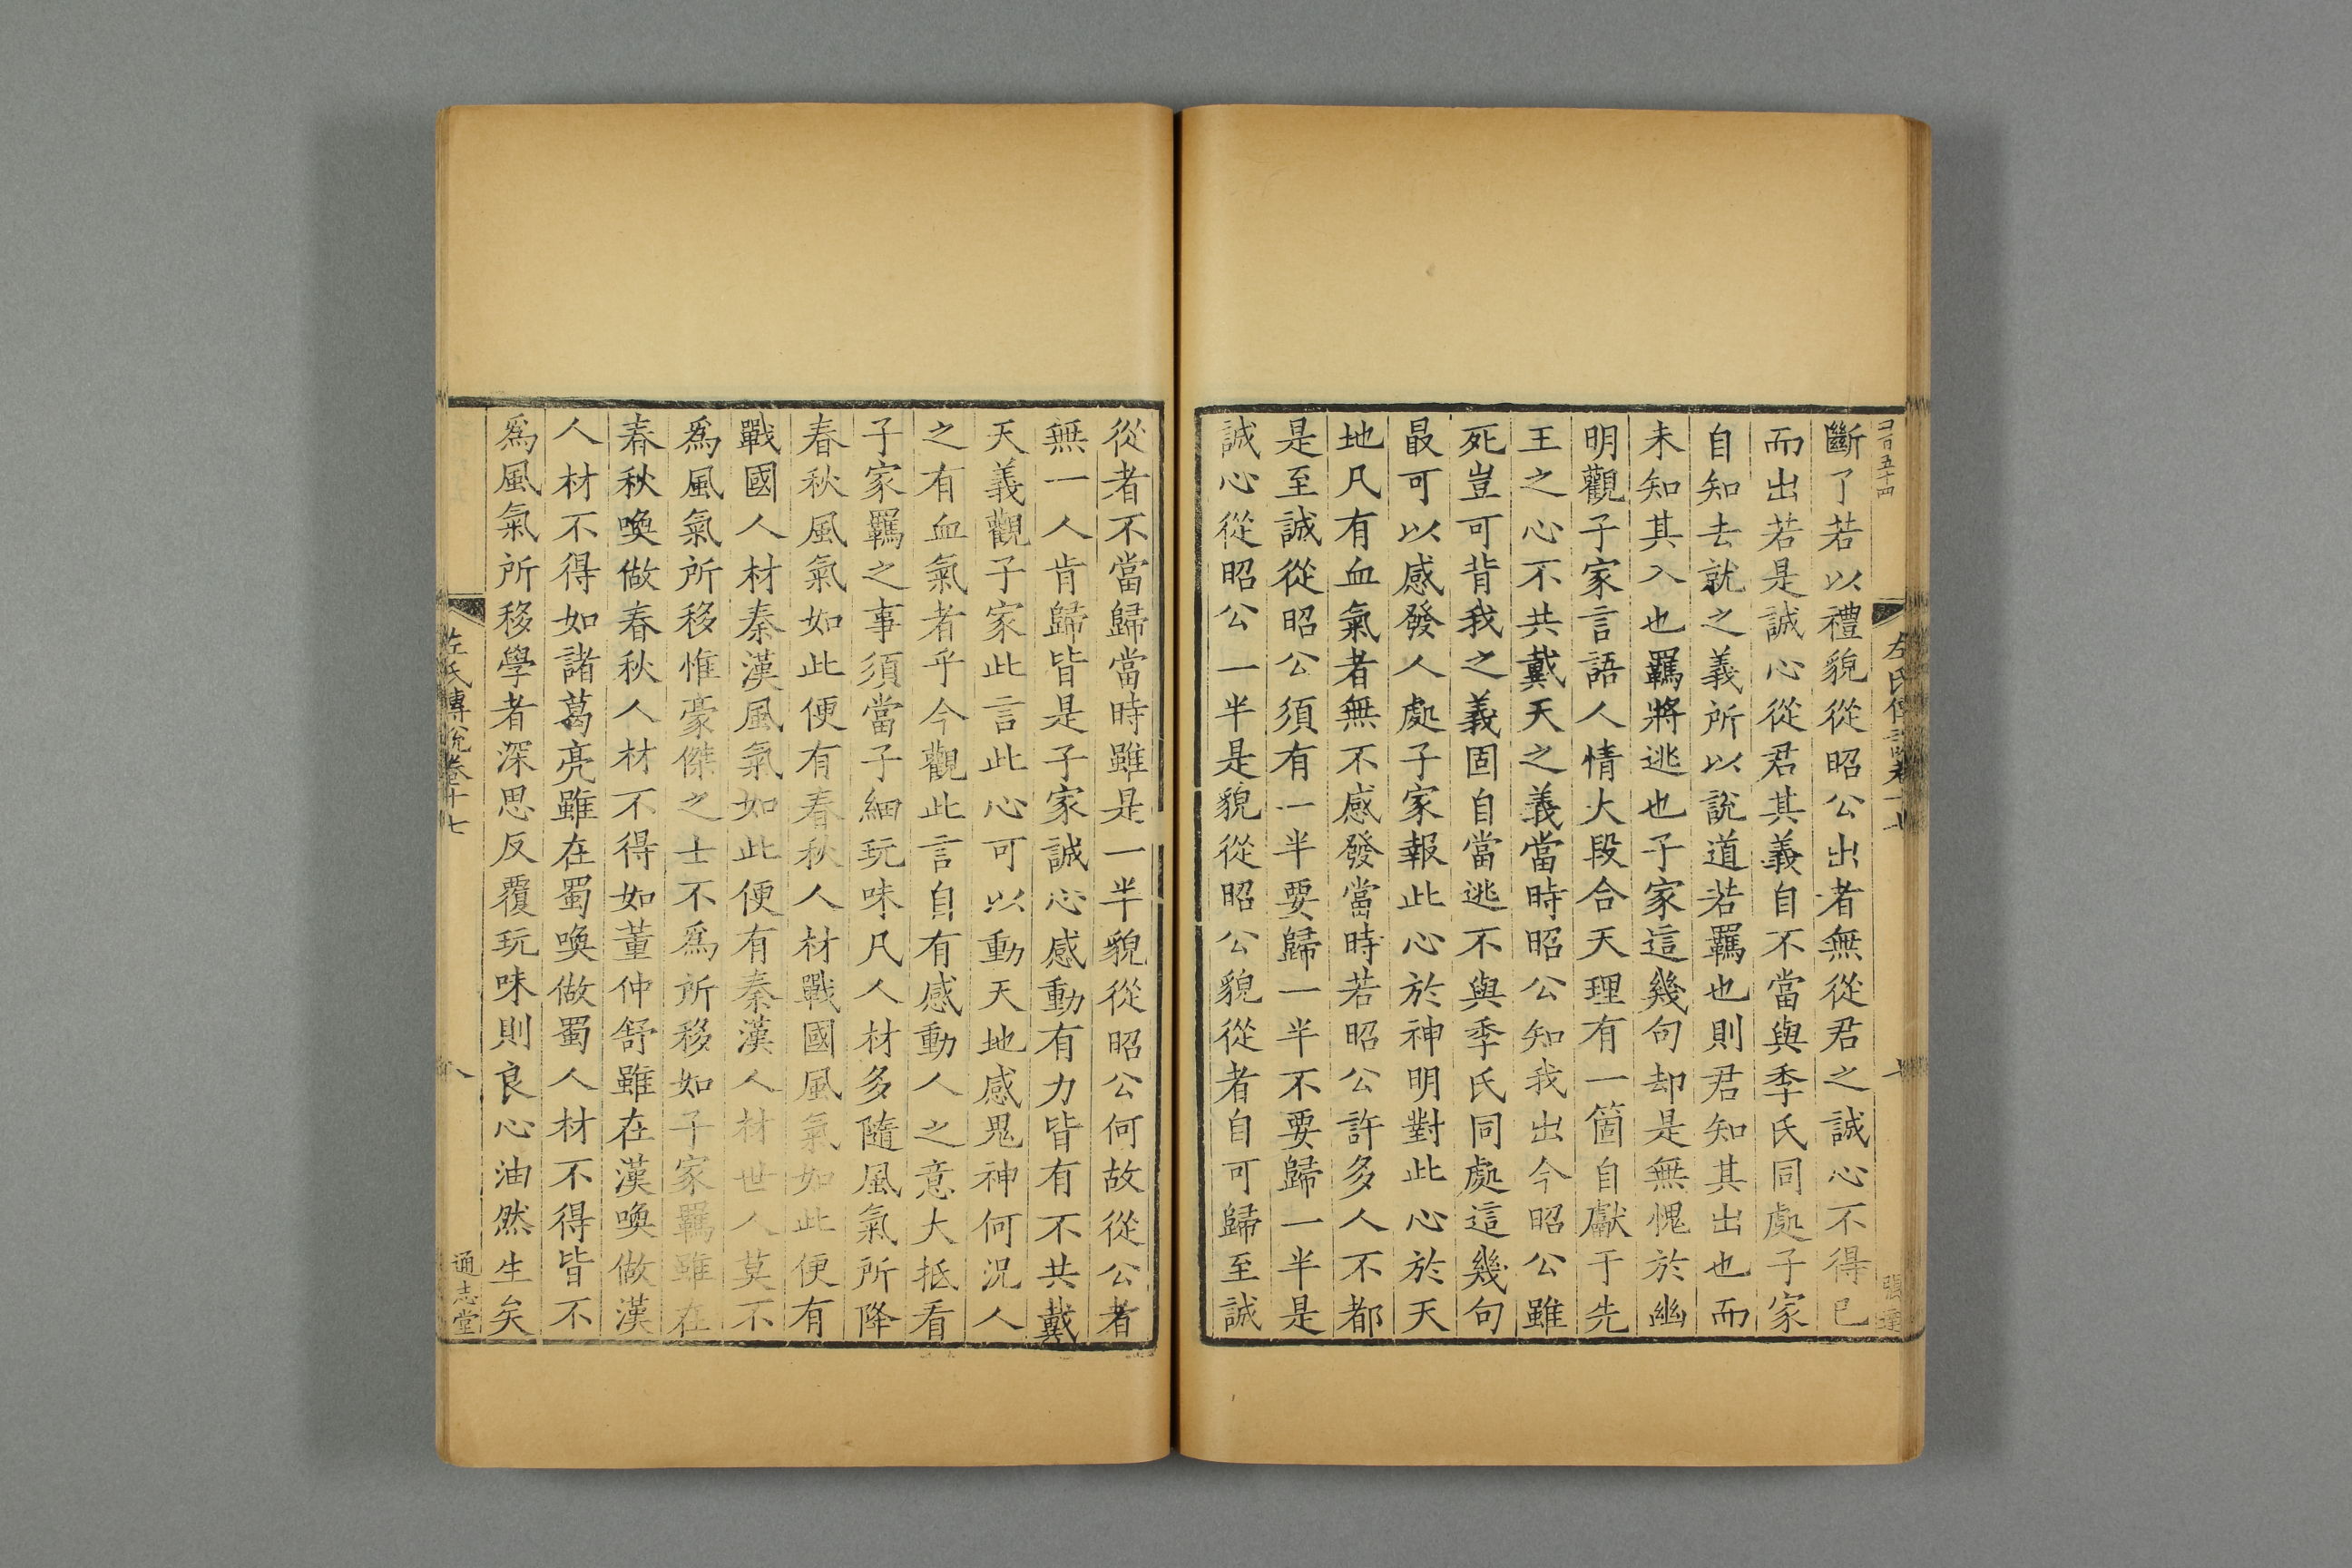 斷了若以禮貌從昭公出者無從君之誠心不得已
而出若是誠心從君其義自不當與季氏同處子家
自知去就之義所以說道若羈也則君知其出也而
未知其入也羈將逃也子家這幾句却是無愧於幽
明觀子家言語人情大段合天理有一箇自獻于先
王之心不共戴天之義當時昭公知我出今昭公雖
死豈可背我之義固自當逃不與季氏同處這幾句
最可以感發人處子家報此心於神明對此心於天
地凡有血氣者無不感發當時若昭公許多人不都
是至誠從昭公須有一半要歸一半不要歸一半是
誠心從昭公一半是貌從昭公貌從者自可歸至誠
從者不當歸當時雖是一半貌從昭公何故從公者
無一人肯歸皆是子家誠心感動有力皆有不共戴
天義觀子家此言此心可以動天地感鬼神何況人
之有血氣者乎今觀此言自有感動人之意大抵看
子家羈之事須當子細玩味凡人材多隨風氣所降
春秋風氣如此便有春秋人材戰國風氣如此便有
戰國人材秦漢風氣如此便有秦漢人材世人莫不
為風氣所移惟豪傑之士不為所移如子家羈雖在
春秋喚做春秋人材不得如董仲舒雖在漢喚做漢
人材不得如諸葛亮雖在蜀喚做蜀人材不得皆不
為風氣所移學者深思反覆玩味則良心油然生矣
左氏傳說卷十七
八
通志堂